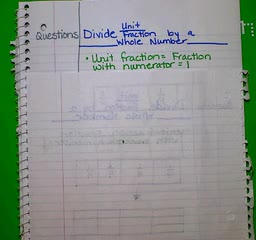 Questions
Divide Unit Fraction by a
Whole Number
• Unit fraction = Fraction
with numerator = 1